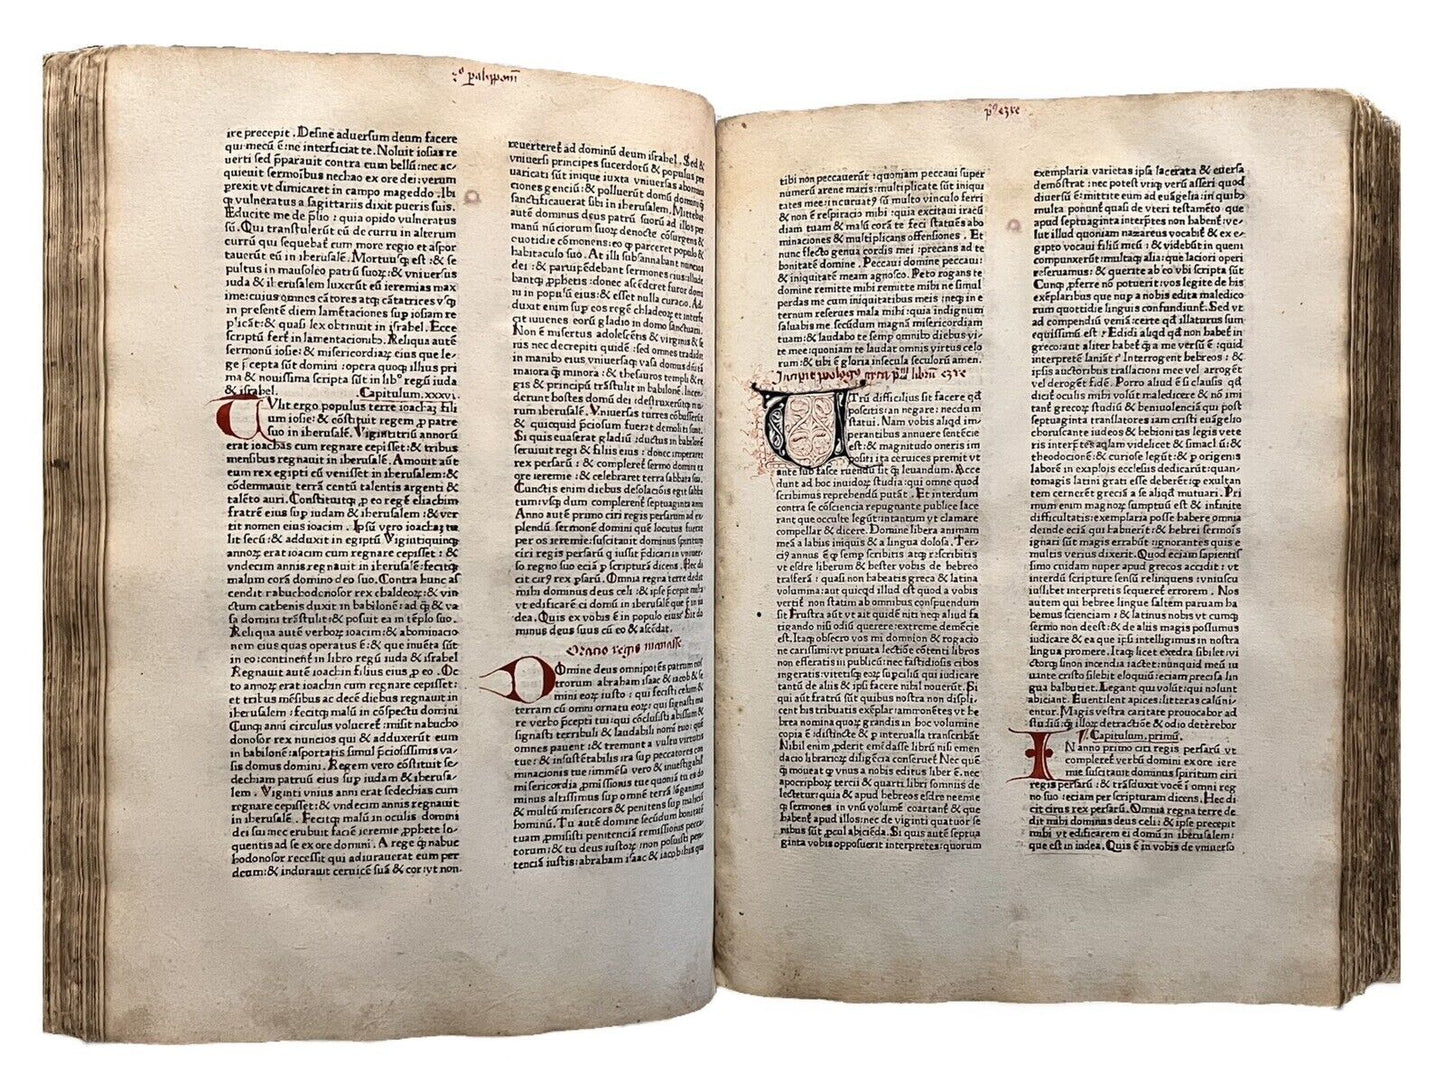 2º palipom
ire precepit . Desine aduersum deum facere
qui mecū ē:ne interficiat te. Noluit iosias re
uerti sed p̄parauit contra eum bellū: nec ac-
quieuit sermoibus nechao ex ore dei: verum
prexit vt dimicaret in campo mageddo . Ibi
vulneratus a sagittariis dixit pueris suis.
Educite me de p̄lio : quia opido vulneratus
sū. Qui transtulerūt eū de curru in alterum
currū qui sequebat̄ eum more regio et aspor
tauerūt eū in iherusalē. Mortuusq̄ est : & se
pultus in mausoleo patrū suoꝝ: & vniuersus
iuda & iherusalem luxerūt eū ieremias max
ime: cuius omnes cātores atq̄ cātatrices vsq̄
in presentē diem lamētaciones sup iosiam re
& quasi lex obtinuit in israhel. Ecce
scriptū fert̄ in lamentacionibꝰ. Reliqua autē
sermonū iosie: & misericordiaꝝ eius que le-
ge p̄cepta sūt domini : opera quoqꝫ illius pri
ma & nouissima scripta sūt in libº regū iuda
& israhel. .Capitulum.xxxvi.
Vlit ergo populus terre ioachaꝫ fili
um iosie: & cōstituit regem p̱ patre
suo in iherusalē. Vigintitriū annorū
erat ioachas cum regnare cepisset: & tribus
mensibus regnauit in iherusalē. Amouit aut̄
eum rex egipti cū venisset in iherusalem : &
cōdemnauit terrā centū talentis argenti &
talēto auri. Constituitq̄ p̱ eo regē eliachim
fratrē eius sup iudam & iherusalem : & ver
tit nomen eius ioacim . Ipsū vero ioachaꝫ tu
lit secū: & adduxit in egiptū. Vigintiquinq̄
annoꝝ erat ioacim cum regnare cepisset : &
vndecim annis regnauit in iherusalē: fecitq̄
malum corā domino deo suo. Contra hunc as
cendit nabuchodonosor rex chaldeoꝝ: & vin
ctum cathenis duxit in babilonē: ad q̄ & va
sa domini trāstulit: & posuit ea in tēplo suo.
Reliqua autē verboꝝ ioacim: & abominacio
nem eius quas operatus ē: & que inuēta sūt
in eo: continent̄ in libro regū iuda & israhel
Regnauit autē ioachin filius eius p̱ eo. Oc
to annoꝝ erat ioachin cum regnare cepisset:
et tribus mēsibus ac decē diebus regnauit in
iherusalem: fecitq̄ malū in cōspectu domini
Cunq̄ anni circulus volueret̄: misit nabucho
donosor rex nuncios qui & adduxerūt eum
in babilonē: asportatis simul p̄ciosissimis va-
sis domus domini. Regem vero cōstituit se-
dechiam patruū eius sup iudam & iherusa-
lem . Viginti vnius anni erat sedechias cum
regnare cepisset: & vndecim annis regnauit
in iherusalē. Fecitq̄ malū in oculis domini
dei sui: nec erubuit faciē ieremie p̱phete lo-
quentis ad se ex ore domini . A rege q̄ nabuc
hodonosor recessit qui adiurauerat eum per
deum: & indurauit ceruicē suā & cor: vt non
reuerteret̄ ad dominū deum israhel. Sed &
vniuersi principes sacerdotū & populus pre
uaricati sūt inique iuxta vniuersas abomina
ciones genciū: & polluerūt domū domini q̄
sanctificauerat sibi in iherusalem. Mittebat
autē dominus deus patrū suorū ad illos per
manū nūciorum suoꝝ: denocte cōsurgens &
cuotidie cōmonens: eo q̄ parceret populo &
habitaculo suo. At illi subsannabant nuncios
dei : & paruip̱debant sermones eius: illude
bantq̄ p̱phetis: donec ascēderet furor domi
ni in populū eius: & esset nulla curacio. Ad
duxit enim sup eos regē chladeoꝝ: et interfe
cit iuuenes eorū gladio in domo sanctuarii.
Non ē misertus adolescētis & virginis & se
nis nec decrepiti quidē: sed omnes tradidit
in manibo eius, vniuersaq̄ vasa domus dñi tā
maiora q̄ minora : & thesauros templi & re
gis & principū trāstulit in babilonē. Incen
derunt hostes domū dei: destruxerūtq̄ mu-
rum iherusalē. Vniuersas turres cōbusserūt
& quicquid p̄ciosum fuerat demoliti sunt.
Si quis euaserat gladiū : ductus in babilonē
seruiuit regi & filiis eius : donec imperaret
rex persarū: & compleret̄ sermo domini ex
ore ieremie : & celebraret terra sabbata sua.
Cunctis enim diebus desolaciōis egit sabba
tum: vsq̄ dum complerent̄ septuaginta anni
Anno autē primo ciri regis persarum ad ex
plendū sermonē domini quē locutus fuerat
per os ieremie: suscitauit dominus spiritum
ciri regis persarū q̄ iusse p̄dicari in vniuer-
so regno suo eciā p̱ scripturā dicens. Hec di
cit cirꝰ rex p̱sarū. Omnia regna terre dedit
mihi dominus deus celi : & ipse p̄cepit mihi
vt edificarē ei domū in iherusalē que ē in iu
dea. Quis ex vobis ē in populo eius? Sit do
minus deus suus cū eo & ascēdat.
Oracio regis manasse
DOmine deus omnipotēs patrum nost
trorum abraham isaac & iacob & se
mini eoꝝ iusto : qui fecisti celum &
terram cū omni ornatu eoꝝ: qui signasti ma
re verbo p̄cepti tui: qui cōclusisti abissum &
signasti terribuli & laudabili nomī tuo: quē
omnes pauent : & tremunt a vultu virtutis
tue : & insustētabilis ira sup peccatores com
minacionis tue: immēsa vero & inuestigabil
misericordia p̱missionis tue quoniā tu es do
minus altissimus sup omnē terrā lōganimis
& multū misericors & penitens sup malicia
hominū. Tu autē domine secūdum bonitatē
tuam p̱misisti penitenciā remissionis pecca-
torum : & tu deus iustoꝝ : non posuisti peni
tenciā iustis: abraham isaac & iacob: ibis qui
pº esre
tibi non peccauerūt : quoniam peccaui super
numerū arene maris: multiplicate sūt iniqui
tates mee: incuruatꝰ sū multo vinculo ferri
& non ē respiracio mihi : quia excitaui iracū
diam tuam & malū corā te feci statuēs abo
minaciones & multiplicans offensiones . Et
nunc flecto genua cordis mei : precans ad te
bonitatē domine. Peccaui domine peccaui:
& iniquitatē meam agnosco. Peto rogans te
domine remitte mihi remitte mihi ne simul
perdas me cum iniquitatibus meis : neq̄ in e
ternum reserues mala mihi: quia indignum
saluabis me secūdum magnā misericordiam
tuam: & laudabo te semp omnibo diebus vi-
te mee: quoniam te laudat omnis virtus celo
rum: & tibi ē gloria insecula seculorū amen.
Incipit prologꝰ libri esre
VTrū difficilius sit facere qd̄
poscitis: an negare: necdum
statui. Nam vobis aliqd im
perantibus annuere sentēcie
est: & magnitudo oneris im
positi ita ceruices premit vt
ante sub fasce ruendū sit q̄ leuandum. Acce
dunt ad hoc inuidoꝝ studia: qui omne quod
scribimus reprehendū putāt. Et interdum
contra se cōsciencia repugnante publice lace
rant que occulte legūt: intantum vt clamare
compellar & dicere. Domine libera animam
meā a labiis iniquis & a lingua dolosa. Ter-
ciꝰ annus ē q̄ semp scribitis atq̄ rescribitis
vt esdre liberum & hester vobis de hebreo
trasferā : quasi non habeatis greca & latina
volumina: aut quicqd illud est quod a vobis
vertit̄ non statim ab omnibus conspuendum
sit. Frustra aūt vt ait quidē niti neq̄ aliud fa
tigando nisi odiū querere: extreme demēcie
est. Itaq̄ obsecro vos mi domnion & rogacio
ne carissimi: vt priuata lectiōe cōtenti libros
non efferatis in publicū: nec fastidiosis cibos
ingeratis: vitetisq̄ eoꝝ supciliū qui iudicare
tantū de aliis & ipsi facere nihil nouerūt. Si
qui aūt fratrū sūt quibus nostra non displi-
cent: his tribuatis exēplar: ammonētes vt he
brea nomina quoꝝ grandis in hoc volumine
copia ē: distincte & p̱ interualla transcribāt
Nihil enim p̱derit emēdasse librū nisi emen
dacio librarioꝝ diligēcia conseruet̄. Nec quē
q̄ moueat q̄ vnus a nobis editus liber ē: nec
apocriphoꝝ tercii & quarti libri somniis de
lectetur: quia & apud hebreos esdre neemie
q̄ sermones in vnū volumē coartant̄: & que
habent̄ apud illos: nec de viginti quatuor se
nibus sūt p̱cul abiciēda. Si quis autē septua
ginta vobis opposuerit interpretes: quorum
exemplaria varietas ipsa lacerata & euersa
demōstrat : nec potest vtiq̄ verū asseri quod
diuersū ē: mittite eum ad euāgelia: in quibo
multa ponunt̄ quasi de vteri testamēto que
apud septuaginta interp̱tes non habent̄: ve-
lut illud quoniam nazareus vocabit̄: & ex e-
gipto vocaui filiū meū : & videbūt in quem
compunxerūt: multaq̄ alia: que laciori operi
reseruamus : & querite ab eo vbi scripta sūt
Cunq̄ p̱ferre nō potuerit: vos legite de his
exēplaribus que nup a nobis edita maledico
rum quottidie linguis confundiunt̄. Sed vt
ad compendiū veniā: certe qd̄ illaturus sum
equissimū est : Edidi aliqd qd̄ non habet̄ in
greco: aut aliter habet̄ q̄ a me versū ē : quid
interpretē laniāt? Interrogent hebreos : &
ipsis auctoribus traslacioni mee vel arroget̄
vel deroget̄ fidē. Porro aliud ē si clausis qd̄
dicit̄ oculis mihi volūt maledicere & nō imi
tant̄ grecoꝝ studiū & beniuolencia qui post
septuaginta translatores iam cristi euāgelio
choruscante iudeos & hebionitas legis vete
ris interp̱tes aqlam videlicet & simaclū: &
theodocionē: & curiose legūt: & p̱ origenis
laborē in exaplois ecclesiis dedicarūt: quan-
tomagis latini grati esse deberēt: q̄ exultan
tem cernerēt greciā a se aliqd mutuari. Pri
mum enim magnoꝝ sumptuū est & infinite
difficultatis: exemplaria posse habere omnia
deinde eciā qui habuerit: & hebrei sermōis
ignari sūt magis errabūt: ignorantes quis e
multis verius dixerit. Quod eciam sapientis
simo cuidam nuper apud grecos accidit : vt
interdū scripture sensū relinquens : vniuscu
iuslibet interp̱tis sequeret̄ errorem . Nos
autem qui hebree lingue saltem paruam ha
bemus scienciam : & latinus nobis vt cunq̄
sermo non deest: & de aliis magis possumus
iudicare & ea que ipsi intelligimus in nostra
lingua promere. Itaq̄ licet exedra sibilet: vi
ctorq̄ sinon incendia iactet: nunquid meū iu
uante cristo silebit eloquiū: eciam precisa lin
gua balbutiet. Legant qui volūt: qui nolunt
abiciant. Euentilent apices: litteras calūni-
entur. Magis vestra caritate prouocabor ad
studiū: q̄ illoꝝ detractiōe & odio deterebor
.Capitulum. primū.
IN anno primo ciri regis persarū vt
compleret̄ verbū domini ex ore iere
mie suscitauit dominus spiritum ciri
regis persarū: & trāsduxit vocē ī omni reg
no suo : eciam per scripturam dicens. Hec di
cit cirus rex persarū. Omnia regna terre de
dit mihi dominus deus celi: & ipse precepit
mihi vt edificarem ei domū in iherusalem:
que est in iudea. Quis ē in vobis de vniuerso